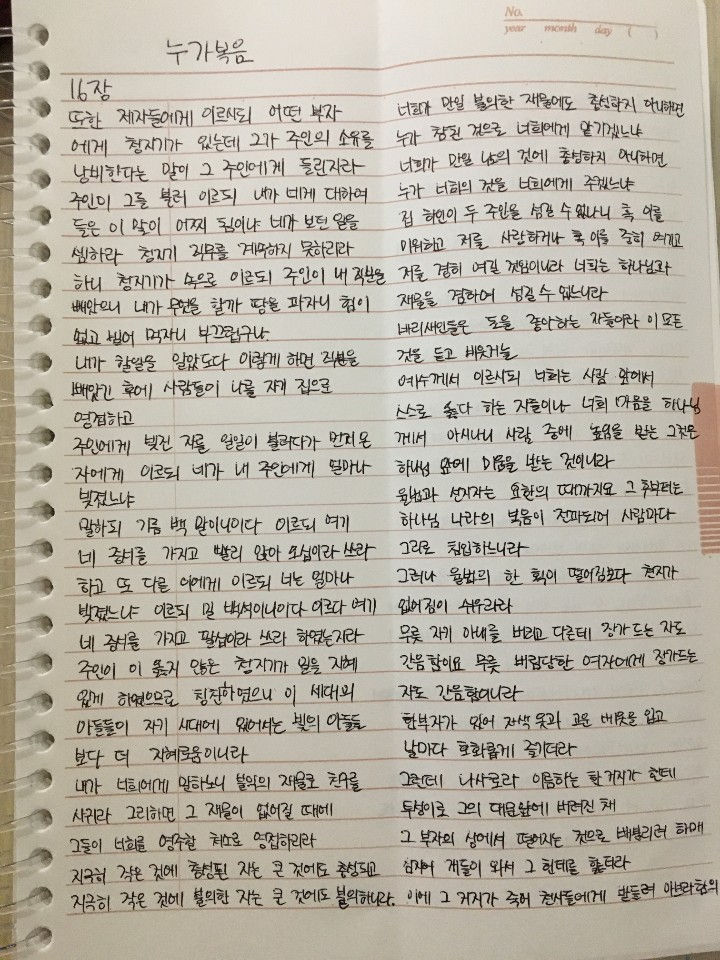 No.
year month day ( )
누가복음
16장
또한 제자들에게 이르시되 어떤 부자
에게 청지기가 있는데 그가 주인의 소유를
낭비한다는 말이 그 주인에게 들린지라
주인이 그를 불러 이르되 내가 네게 대하여
들은 이 말이 어찌 됨이냐 네가 보던 일을
셈하라 청지기 직무를 계속하지 못하리라
하니 청지기가 속으로 이르되 주인이 내 직분을
빼앗으니 내가 무엇을 할까 땅을 파자니 힘이
없고 빌어 먹자니 부끄럽구나.
내가 할일을 알았도다 이렇게 하면 직분을
빼앗긴 후에 사람들이 나를 자기 집으로
영접하고
주인에게 빚진 자를 일일이 불러다가 먼저 온
자에게 이르되 네가 내 주인에게 얼마나
빚졌느냐
말하되 기름 백 말이니이다 이르되 여기
네 증서를 가지고 빨리 앉아 오십이라 쓰라
하고 또 다른 이에게 이르되 너는 얼마나
빚졌느냐 이르되 밀 백석이니이다 이르되 여기
네 증서를 가지고 팔십이라 쓰라 하였는지라
주인이 이 옳지 않은 청지기가 일을 지혜
있게 하였으므로 칭찬하였으니 이 세대의
아들들이 자기 시대에 있어서는 빛의 아들들
보다 더 지혜로움이니라
내가 너희에게 말하노니 불의의 재물로 친구를
사귀라 그리하면 그 재물이 없어질 때에
그들이 너희를 영주할 처소로 영접하리라
지극히 작은 것에 충성된 자는 큰 것에도 충성되고
지극히 작은 것에 불의한 자는 큰 것에도 불의하니라.
너희가 만일 불의한 재물에도 충성하지 아니하면
누가 참된 것으로 너희에게 맡기겠느냐
너희가 만일 남의 것에 충성하지 아니하면
누가 너희의 것을 너희에게 주겠느냐
집 하인이 두 주인을 섬길 수 없나니 혹 이를
미워하고 저를 사랑하거나 혹 이를 중히 여기고
저를 경히 여길 것임이니라 너희는 하나님과
재물을 겸하여 섬길 수 없느니라
바리새인들은 돈을 좋아하는 자들이라 이 모든
것을 듣고 비웃거늘
예수께서 이르시되 너희는 사람 앞에서
스스로 옳다 하는 자들이나 너희 마음을 하나님
께서 아시나니 사람 중에 높임을 받는 그것은
하나님 앞에 미움을 받는 것이니라
율법과 선지자는 요한의 때까지요 그 후부터는
하나님 나라의 복음이 전파되어 사람마다
그리로 침입하느니라
그러나 율법의 한 획이 떨어짐보다 천지가
없어짐이 쉬우리라
무릇 자기 아내를 버리고 다른데 장가드는 자도
간음함이요 무릇 버림당한 여자에게 장가드는
자도 간음함이니라
한부자가 있어 자색 옷과 고운 베옷을 입고
날마다 호화롭게 즐기더라
그런데 나사로라 이름하는 한 거지가 헌데
투성이로 그의 대문앞에 버려진 채
그 부자의 상에서 떨어지는 것으로 배불리려 하매
심지어 개들이 와서 그 헌데를 핥더라
이에 그 거지가 죽어 천사들에게 받들려 아브라함의